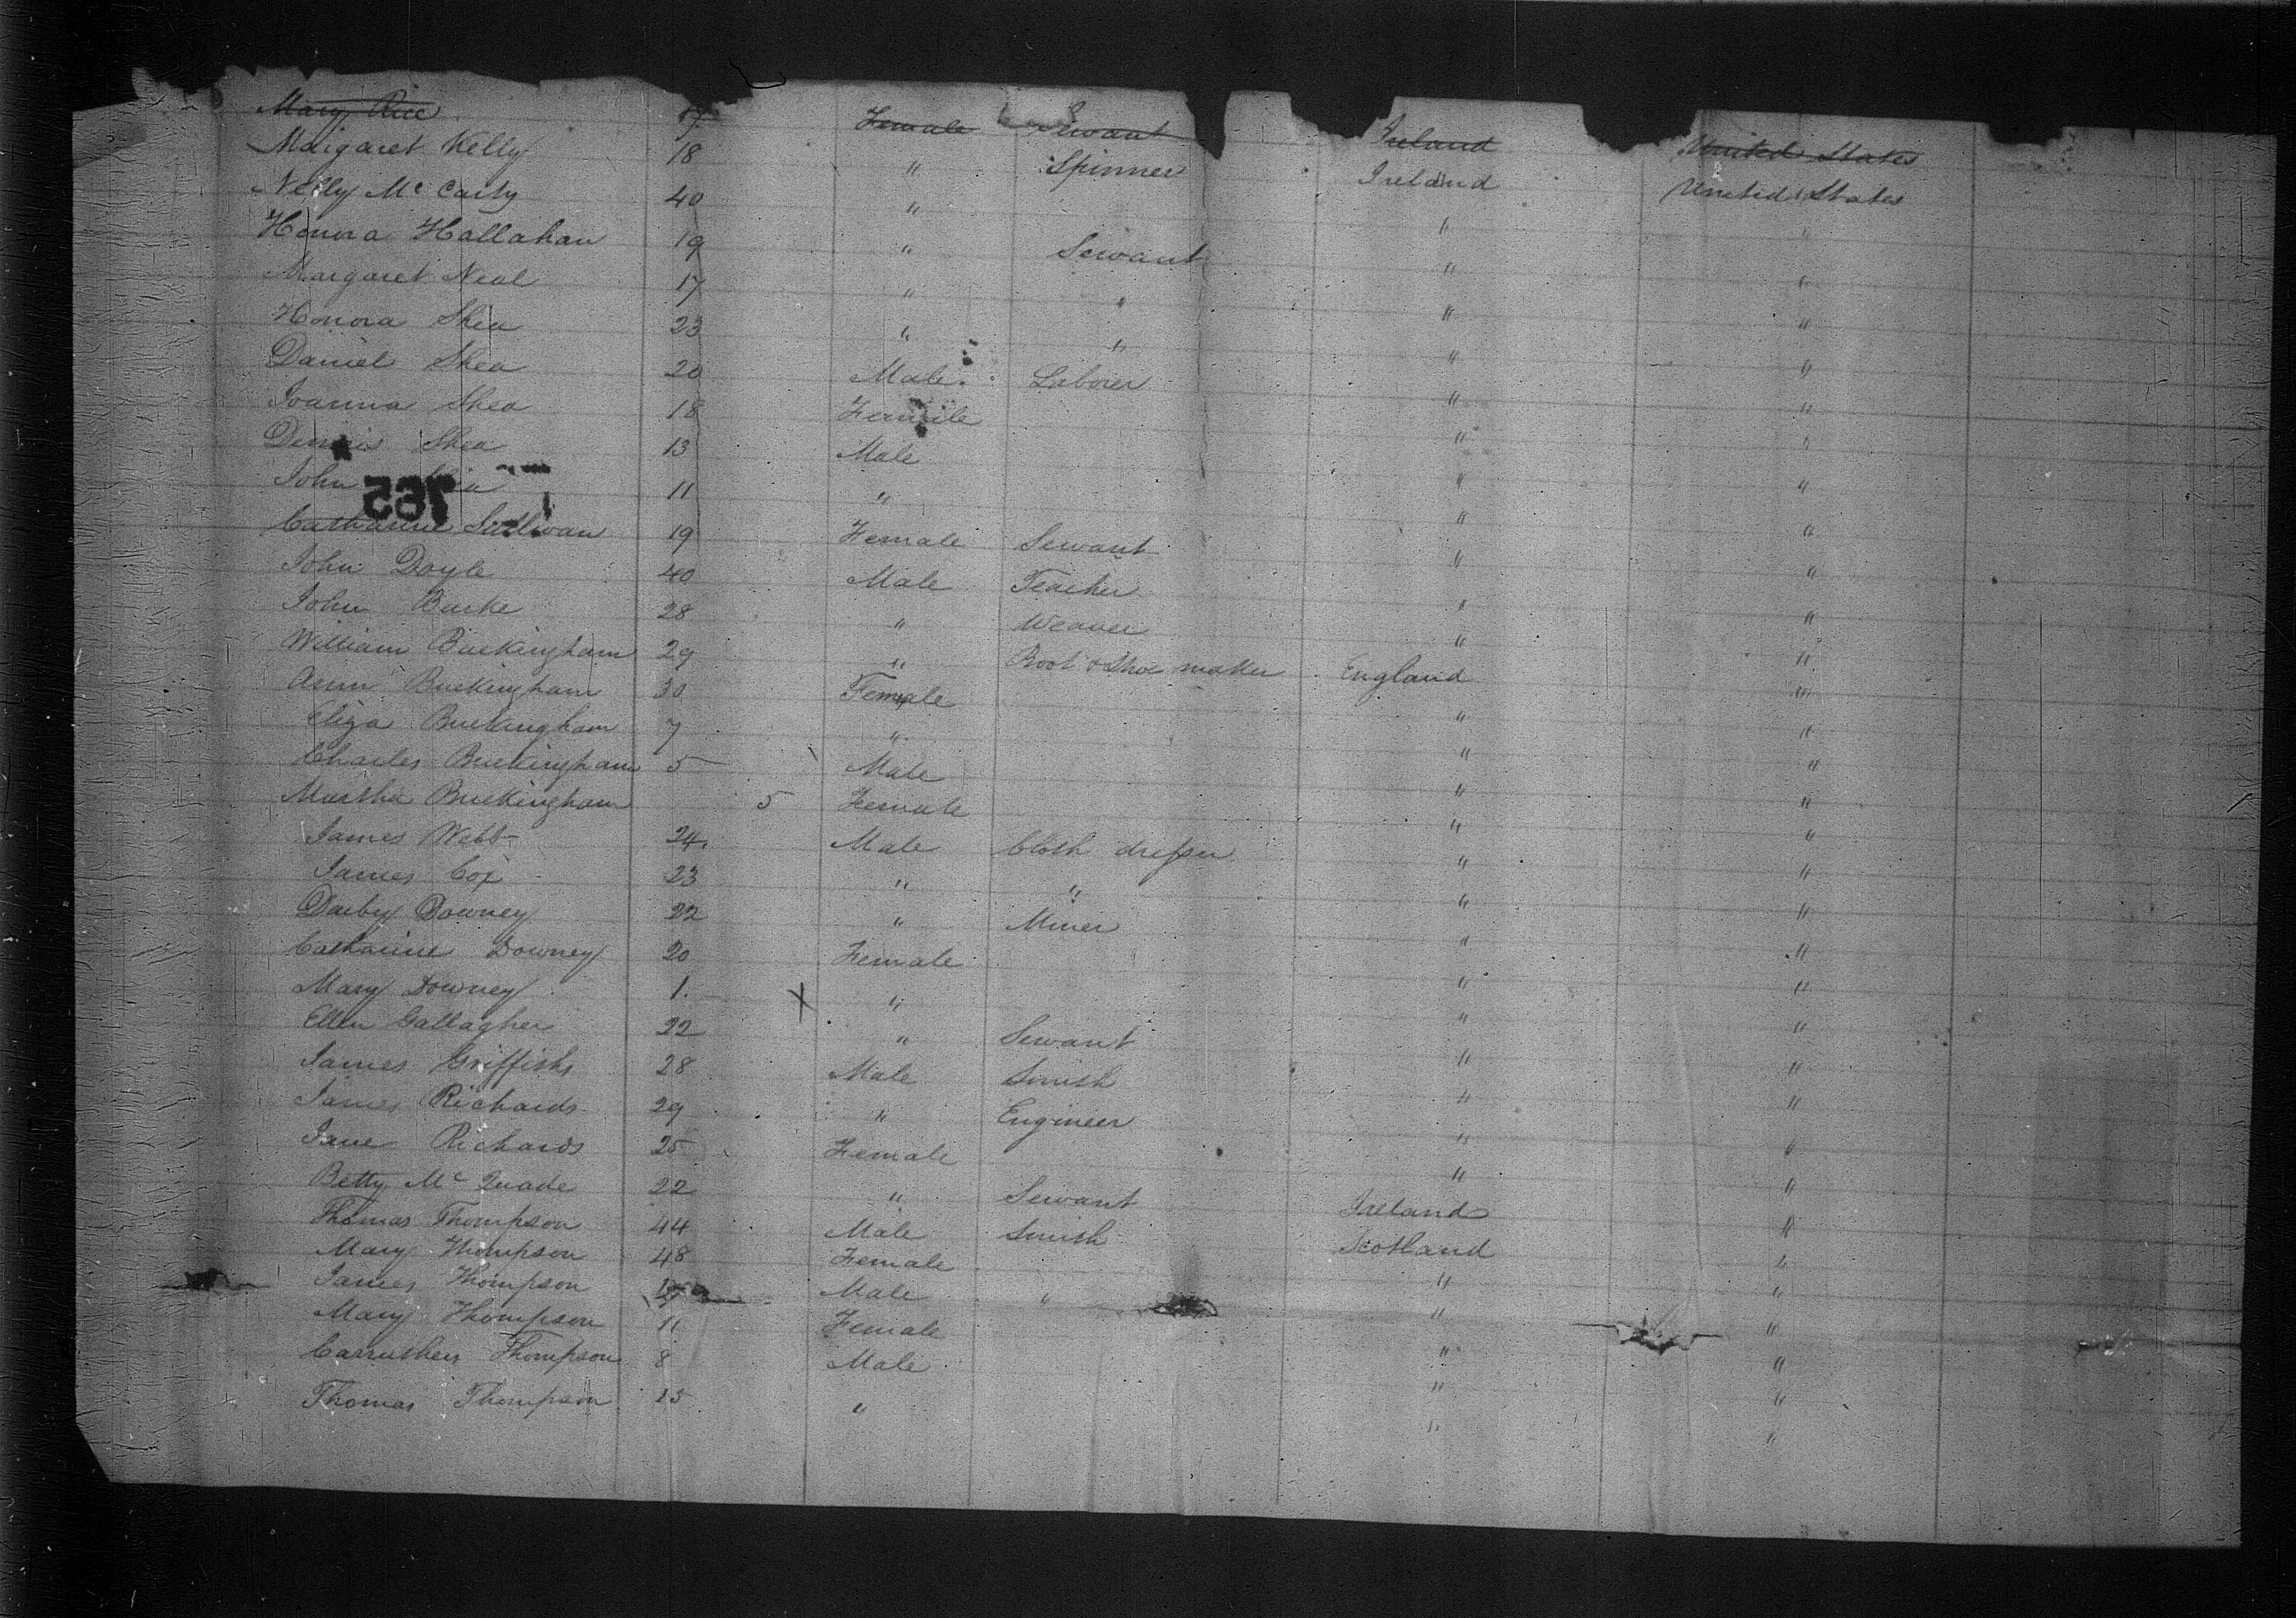 Mary Rice 17 Female Servant Ireland United States
Margaret Kelly 18 " Spinner Ireland United States
Nelly Mc Carty 40 " " "
Honora Hallahan 19 " Servant " "
Margaret Neal 17 " " " "
Honora Shea 23 " " " "
Daniel Shea 20 Male Laborer " "
Joanna Shea 18 Female " "
Dennis Shea 13 Male " "
John Shea 11 " " "
Catharine Sullivan 19 Female Servant " "
John Doyle 40 Male Teacher " "
John Burke 28 " Weaver " "
William Buckingham 29 " Boot & Shoe maker England "
Ann Buckingham 30 Female " "
Eliza Buckingham 7 " " "
Charles Buckingham 5 Male " "
Martha Buckingham 5 Female " "
James Webb 24 Male Cloth dresser " "
James Cox 23 " " " "
Darby Downey 22 " Miner " "
Catharine Downey 20 Female " "
Mary Downey 1. X " " "
Ellen Gallagher 22 " Servant " "
James Griffiths 28 Male Smith " "
James Richards 29 " Engineer " "
Jane Richards 25 Female " "
Betty Mc Quade 22 " Servant Ireland "
Thomas Thompson 44 Male Smith Scotland "
Mary Thompson 48 Female " "
James Thompson Male " " "
Mary Thompson 11 Female " "
Carruthers Thompson 8 Male " "
Thomas Thompson 15 " " "